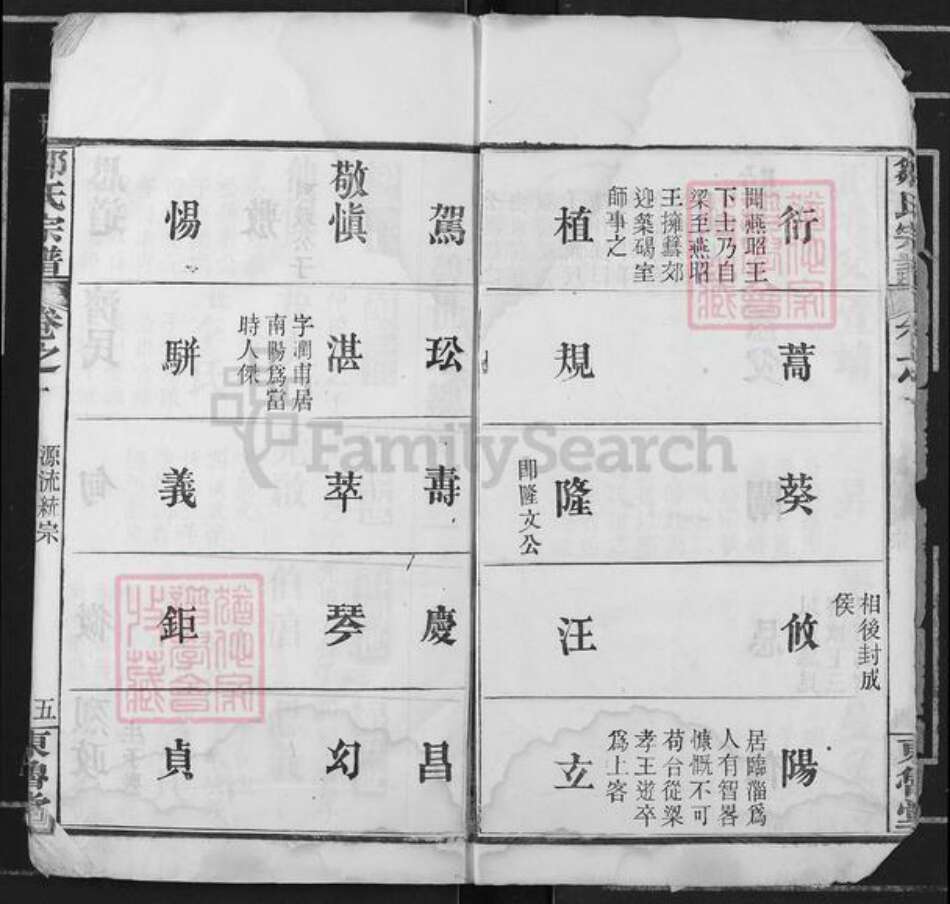 聞燕昭王
下士乃自
梁至燕昭
王擁彗郊
迎築碣室
師事之
衍
植
蒿
規
葵
隆
即隆文公
相後封成
侯
攸
汪
陽
居臨淄為
人有智畧
慷慨不可
苟合從梁
孝王遊卒
為上客
立
駕
敬慎
惕
玜
湛
字潤甫居
南陽爲當
時人傑
駢
壽
萃
義
慶
琴
鉅
昌
幻
貞
鄒氏宗譜
卷之
源流統宗
五
東魯堂
FamilySearch